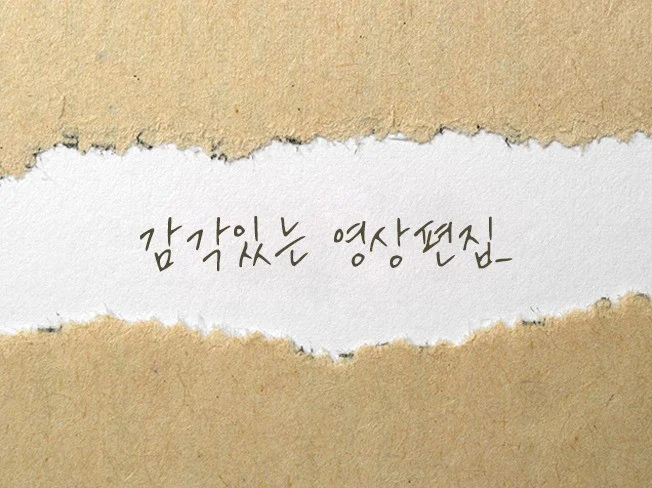 감각있는 영상편집_